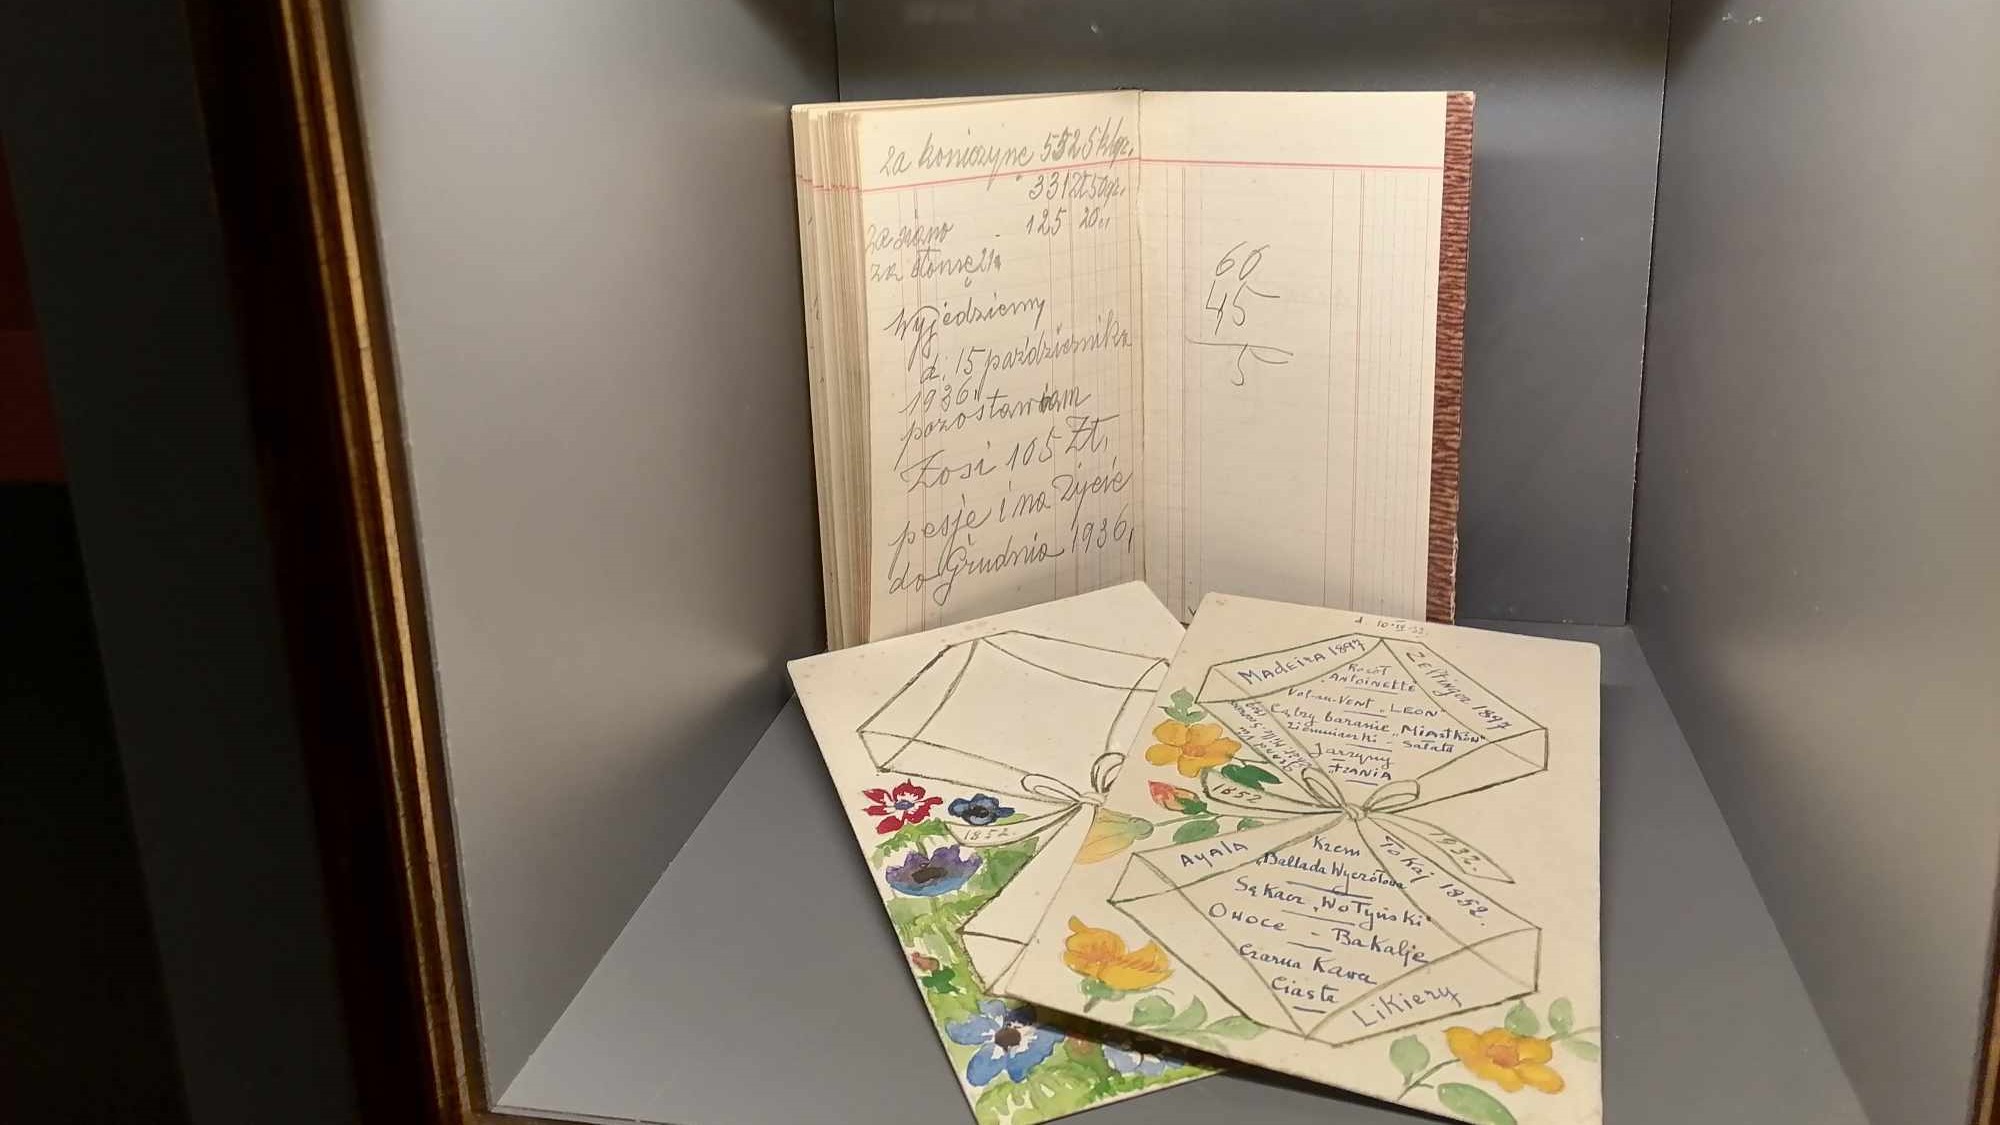 za koniczynę 5525 klgr.
331 zł 50 gr.
za siano 125 20 „
za słomę
Wyjedziemy
d. 15 października
1936.
pozostawiam
Zosi 105 Zł,
pesje i na życie
do Grudnia 1936,
60
45
5
1852.
Madeira 1897
Zeltinger 1897
Rosół
"Antoinette"
Vol-au-Vent „Leon"
Cąbry baranie „Miastków"
ziemniaki - Sałata
Jarzyny
„Irania
1852
1932.
Ayala
Tokaj 1852.
Krem
„Ballada Wyczółowa
Sękacz „Wołyński"
Owoce - Bakalje
Czarna Kawa
Ciasta
Likiery